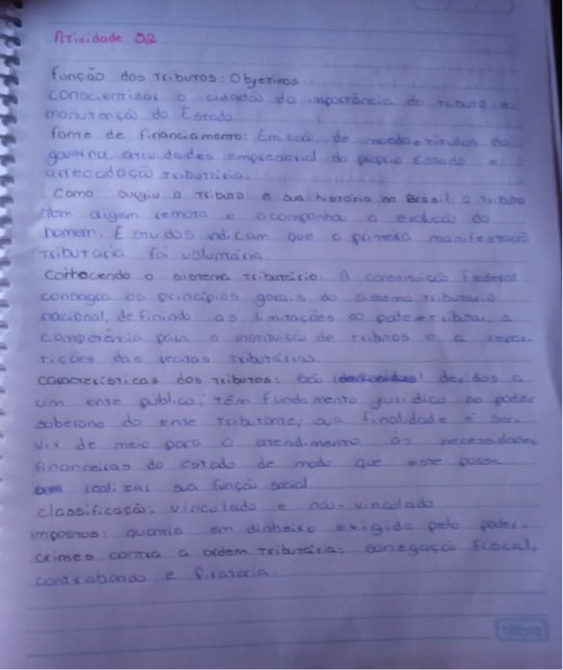 Atividade 02
Função dos Tributos: Objetivos
conscientizar o cidadão da importância do tributo e
manutenção do Estado.
fonte de financiamento: Emissão de moeda e títulos do
governo atividades empresarial do próprio Estado e
arrecadação tributária.
Como surgiu o Tributo e sua história no Brasil: o tributo
tem origem remota e acompanhou a evolução do
homem. Estudos indicam que a primeira manifestação
tributária foi voluntária.
conhecendo o sistema tributário: A constituição Federal
consagra os princípios gerais do sistema tributário
nacional, definindo as limitações ao poder tributar, a
competência para a instituição de tributos e a repar
tições das receitas tributárias.
características dos tributos: São devidos a
um ente público; têm fundamento jurídico no poder
soberano do ente tributante; sua finalidade é ser
vir de meio para o atendimento às necessidades
financeiras do estado de modo que este possa
realizar sua função social.
classificação: vinculado e não-vinculado
impostos: quantia em dinheiro exigida pelo poder.
crimes contra a ordem tributária: sonegação fiscal,
contrabando e pirataria.
tilibra